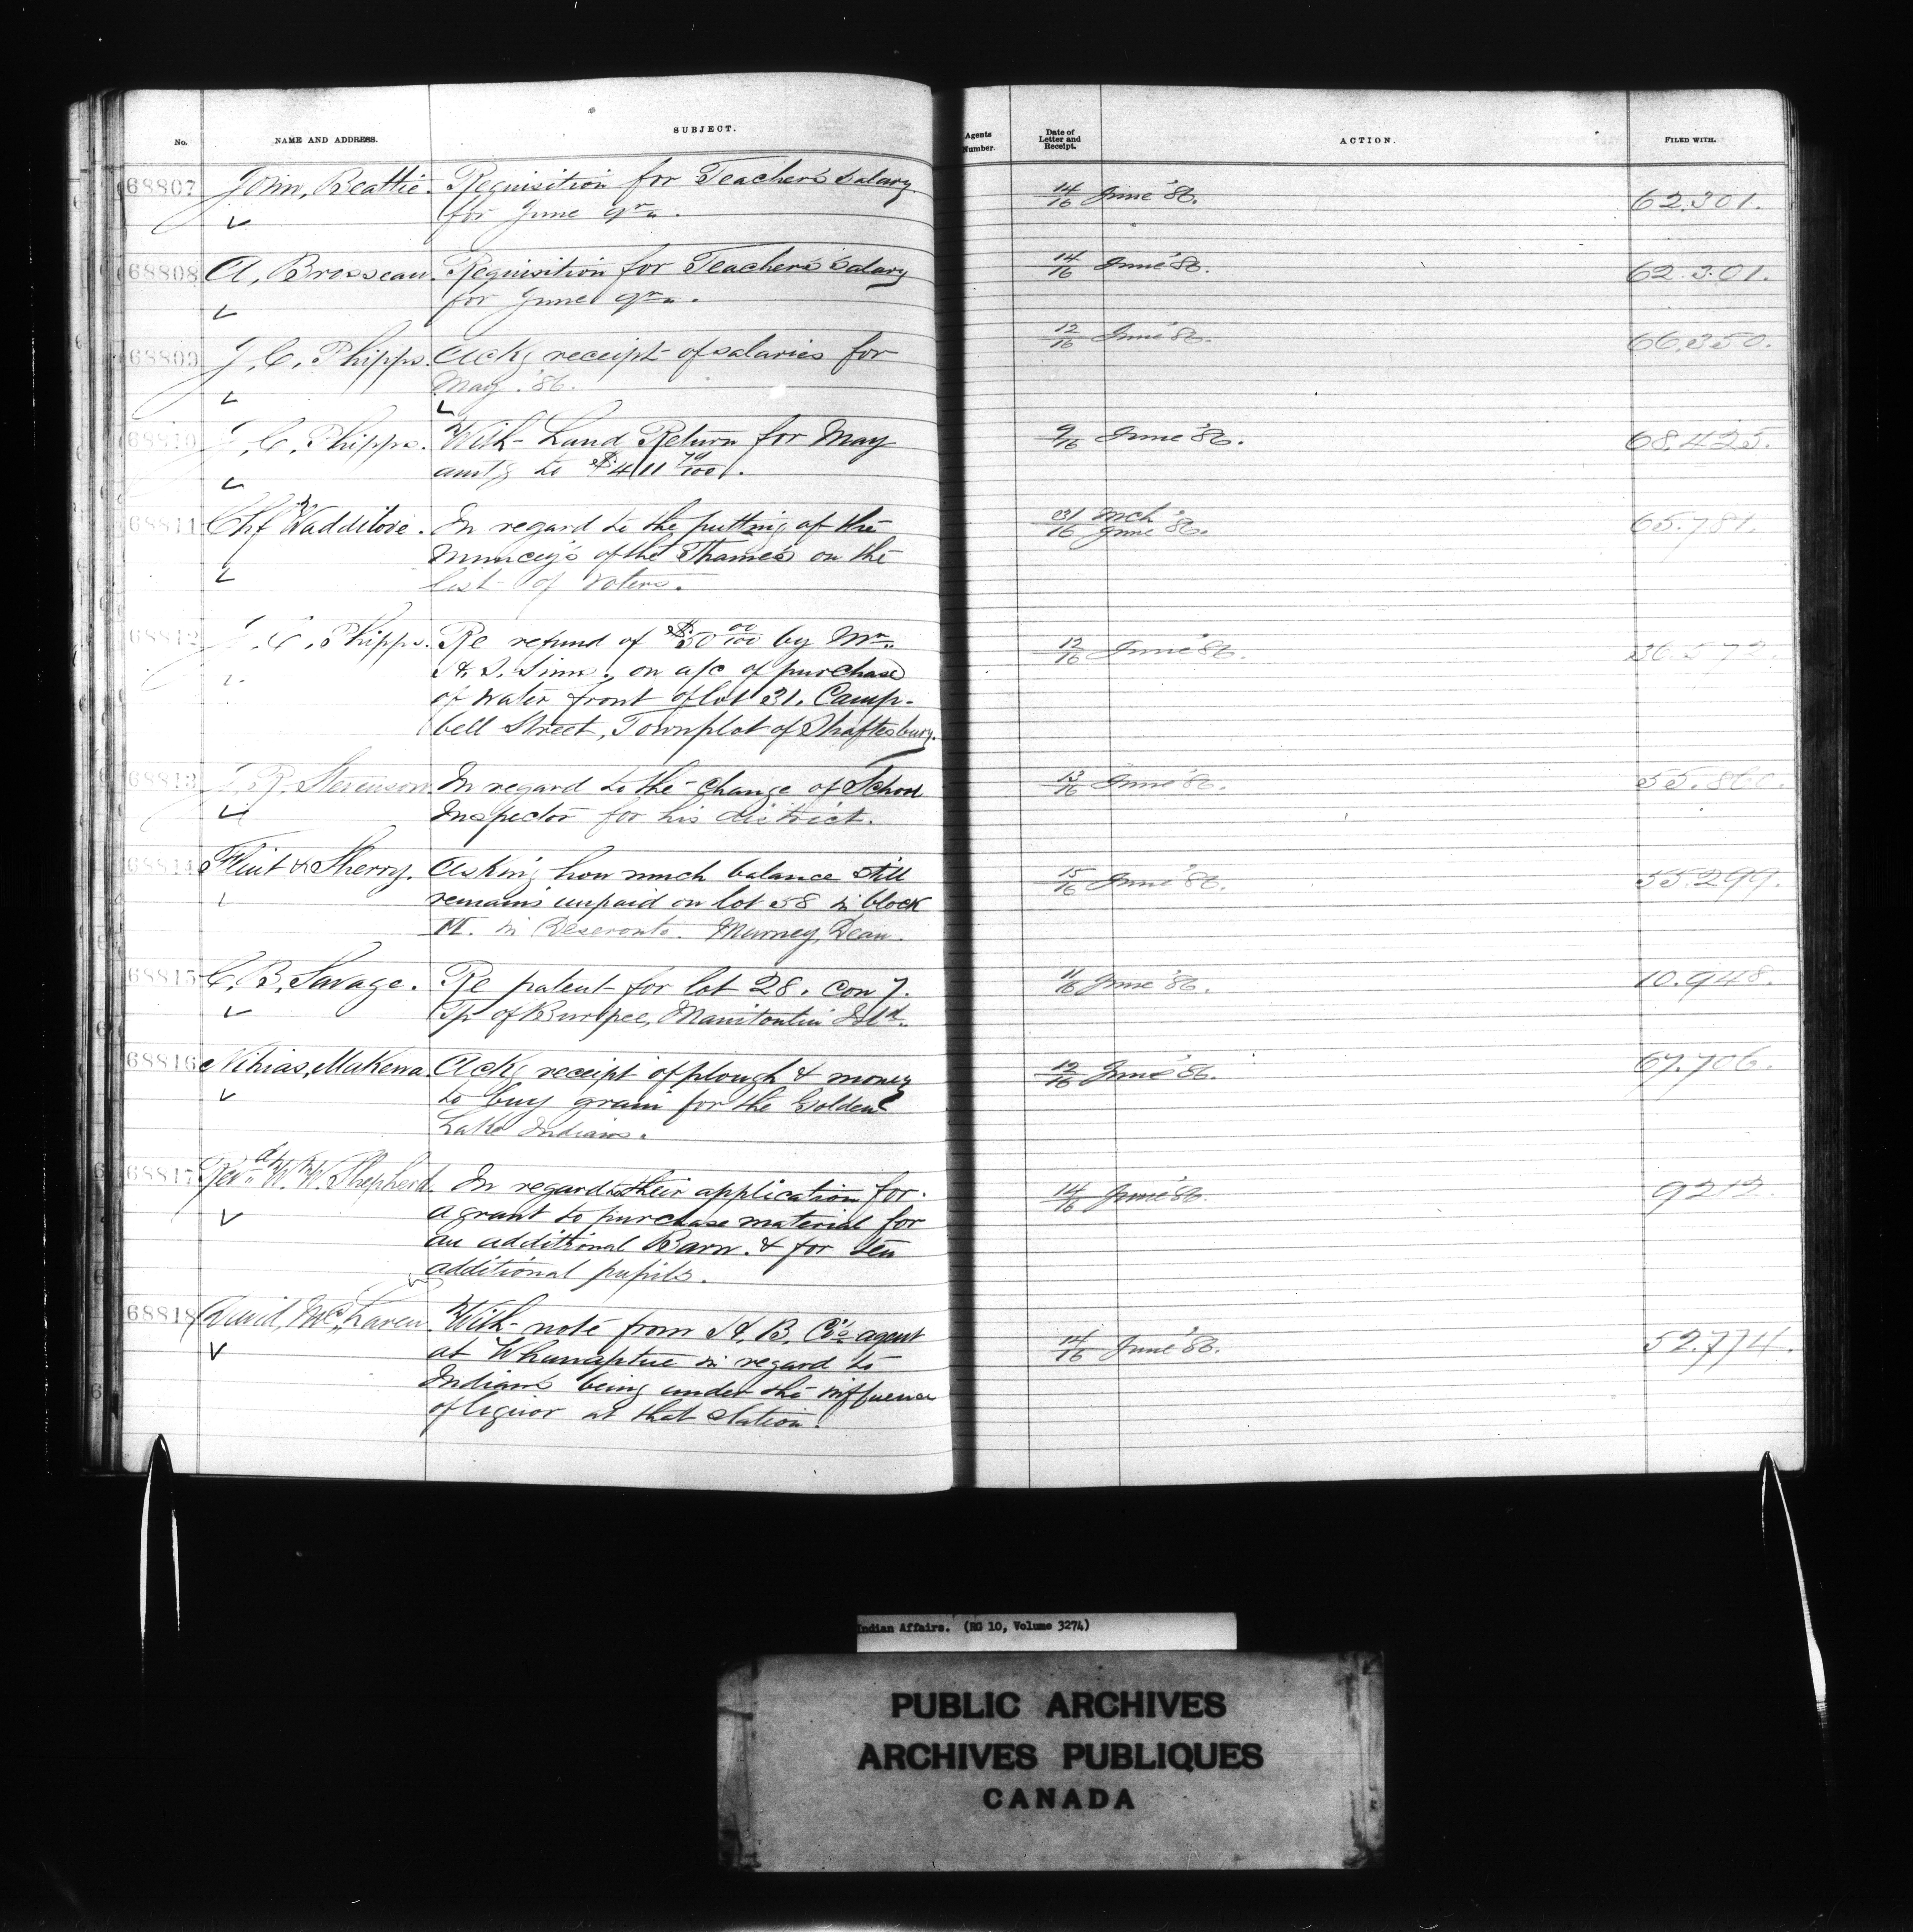 No. NAME AND ADDRESS. SUBJECT. Agents Number. Date of Letter and Receipt. ACTION. FILED WITH.
68807 John, Beattie. Requisition for Teacher's Salary 14/16 June '86. 62.301.
for June qr.
68808 A, Brosseau. Requisition for Teacher's Salary 14/16 June '86. 62.301.
for June qr.
68809 J, C, Phipps. Ackg receipt of salaries for 12/16 June '86. 66,350.
May. '86.
68810 J, C, Phipps. With Land Return for May 9/16 June '86. 68,425.
amtg to $411 /100.
68811 Chf Waddilove. In regard to the putting of the 31 Mch 16 June '86. 65.781.
Muncey's of the Thames on the
list of Voters.
68812 J. C, Phipps. Re refund of $50 00/100 by Mr. 12/16 June '86.
on a/c of purchase
of water front of lot 31. Camp-
bell Street, Townplot of Shaftesbury.
68813 R. Stevenson In regard to the change of School 13/16 June '86. 55.860.
Inspector for his district.
68814 Flint & Sherry. Asking how much balance still 15/16 June '86. 55.299.
remains unpaid on lot 58 in block
M. in Deseronto. Murney, Dean.
68815 C. B, Savage. Re patent for lot 28. Con 7. 11/16 June '86. 10.948.
Tp of Burpee, Manitoulin Isld.
68816 Nihias, Makewa. Ackg receipt of plough & money 12/16 June '86. 67.706.
to buy grain for the Golden
Lake Indians.
68817 Revd W. W. Shepherd. In regard to their application for 14/16 June '86. 9212.
a grant to purchase material for
an additional Barn. & for ten
additional pupils.
68818 David, McLaren. With note from H. B. Co's agent 14/16 June '86. 52.774.
at Whanapitae in regard to
Indians being under the influence
of liquor at that station.
Indian Affairs. (RG 10, Volume 3274)
PUBLIC ARCHIVES
ARCHIVES PUBLIQUES
CANADA